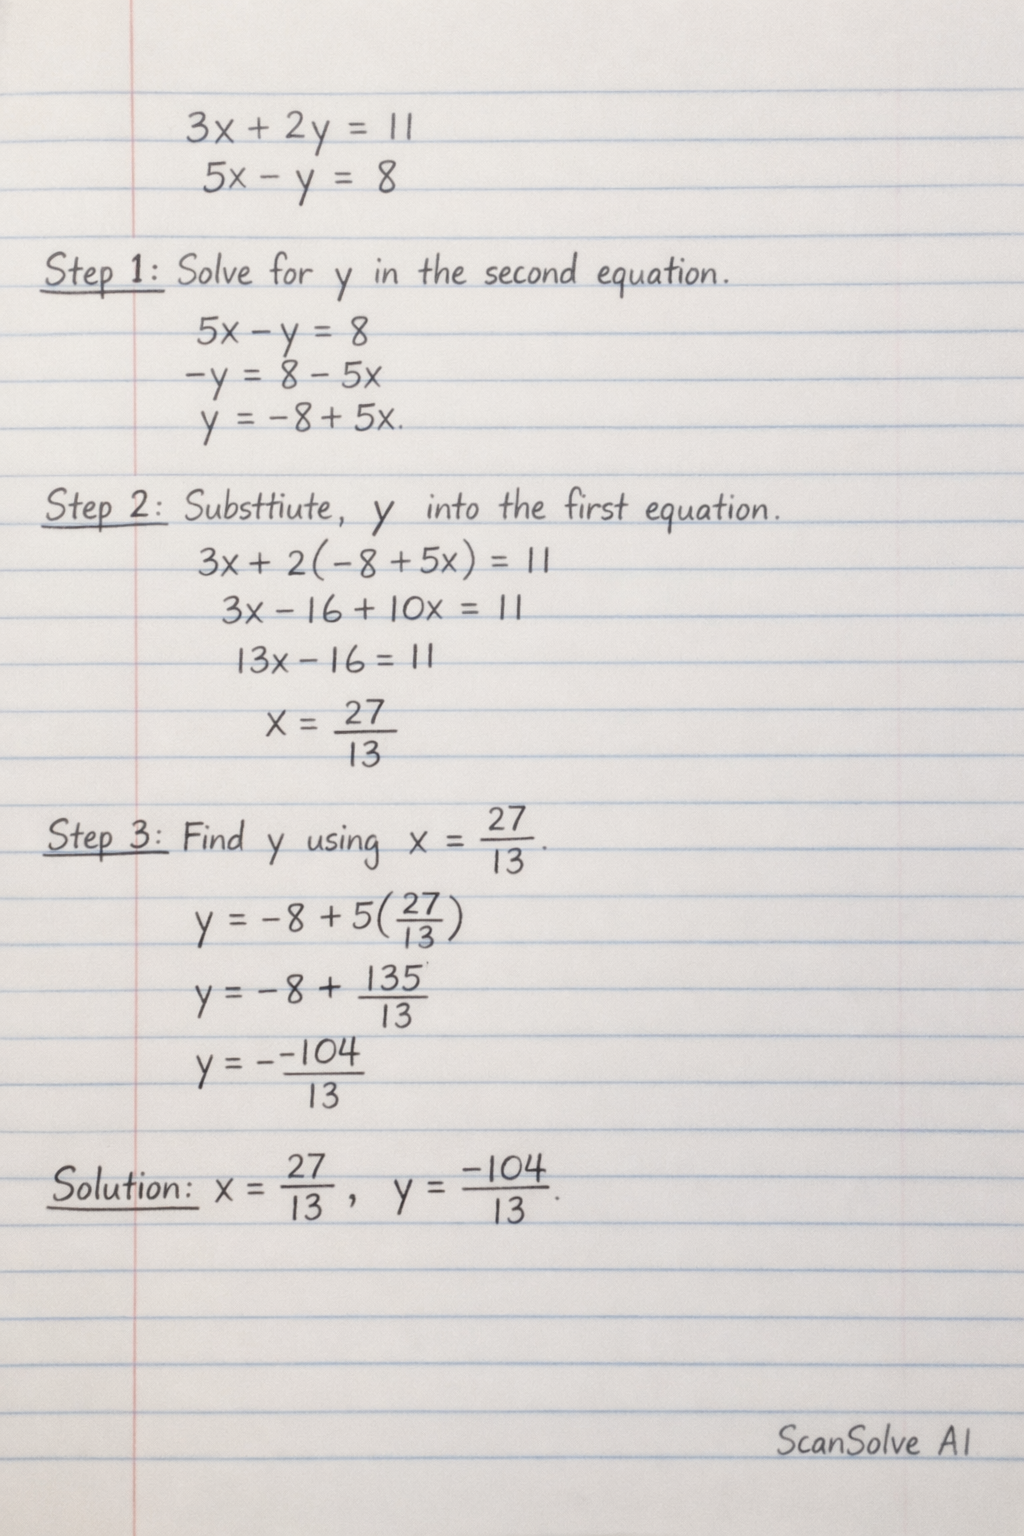 3x + 2y = 11
5x − y = 8
Step 1: Solve for y in the second equation.
5x − y = 8
−y = 8 − 5x
y = −8 + 5x.
Step 2: Substtiute, y into the first equation.
3x + 2(−8 + 5x) = 11
3x − 16 + 10x = 11
13x − 16 = 11
x = 27/13
Step 3: Find y using x = 27/13.
y = −8 + 5(27/13)
y = −8 + 135/13
y = −−104/13
Solution: x = 27/13, y = −104/13.
ScanSolve AI